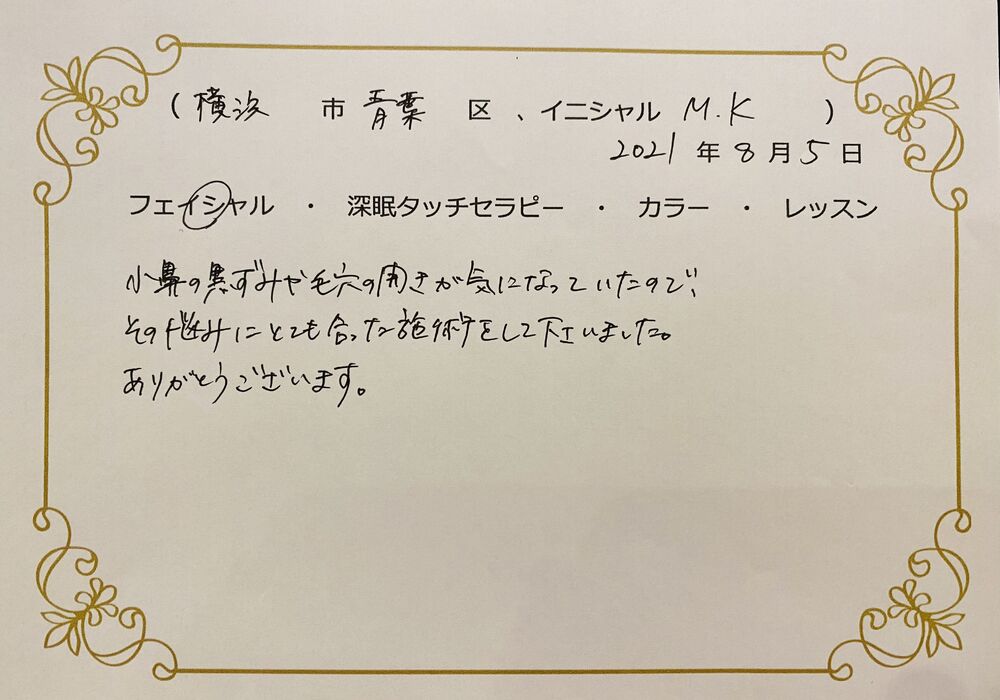 （横浜 市 青葉 区 、イニシャル M.K ）
2021 年 8 月 5 日
フェイシャル ・ 深眠タッチセラピー ・ カラー ・ レッスン
小鼻の黒ずみや毛穴の開きが気になっていたので、
その悩みにとても合った施術をして下さいました。
ありがとうございます。